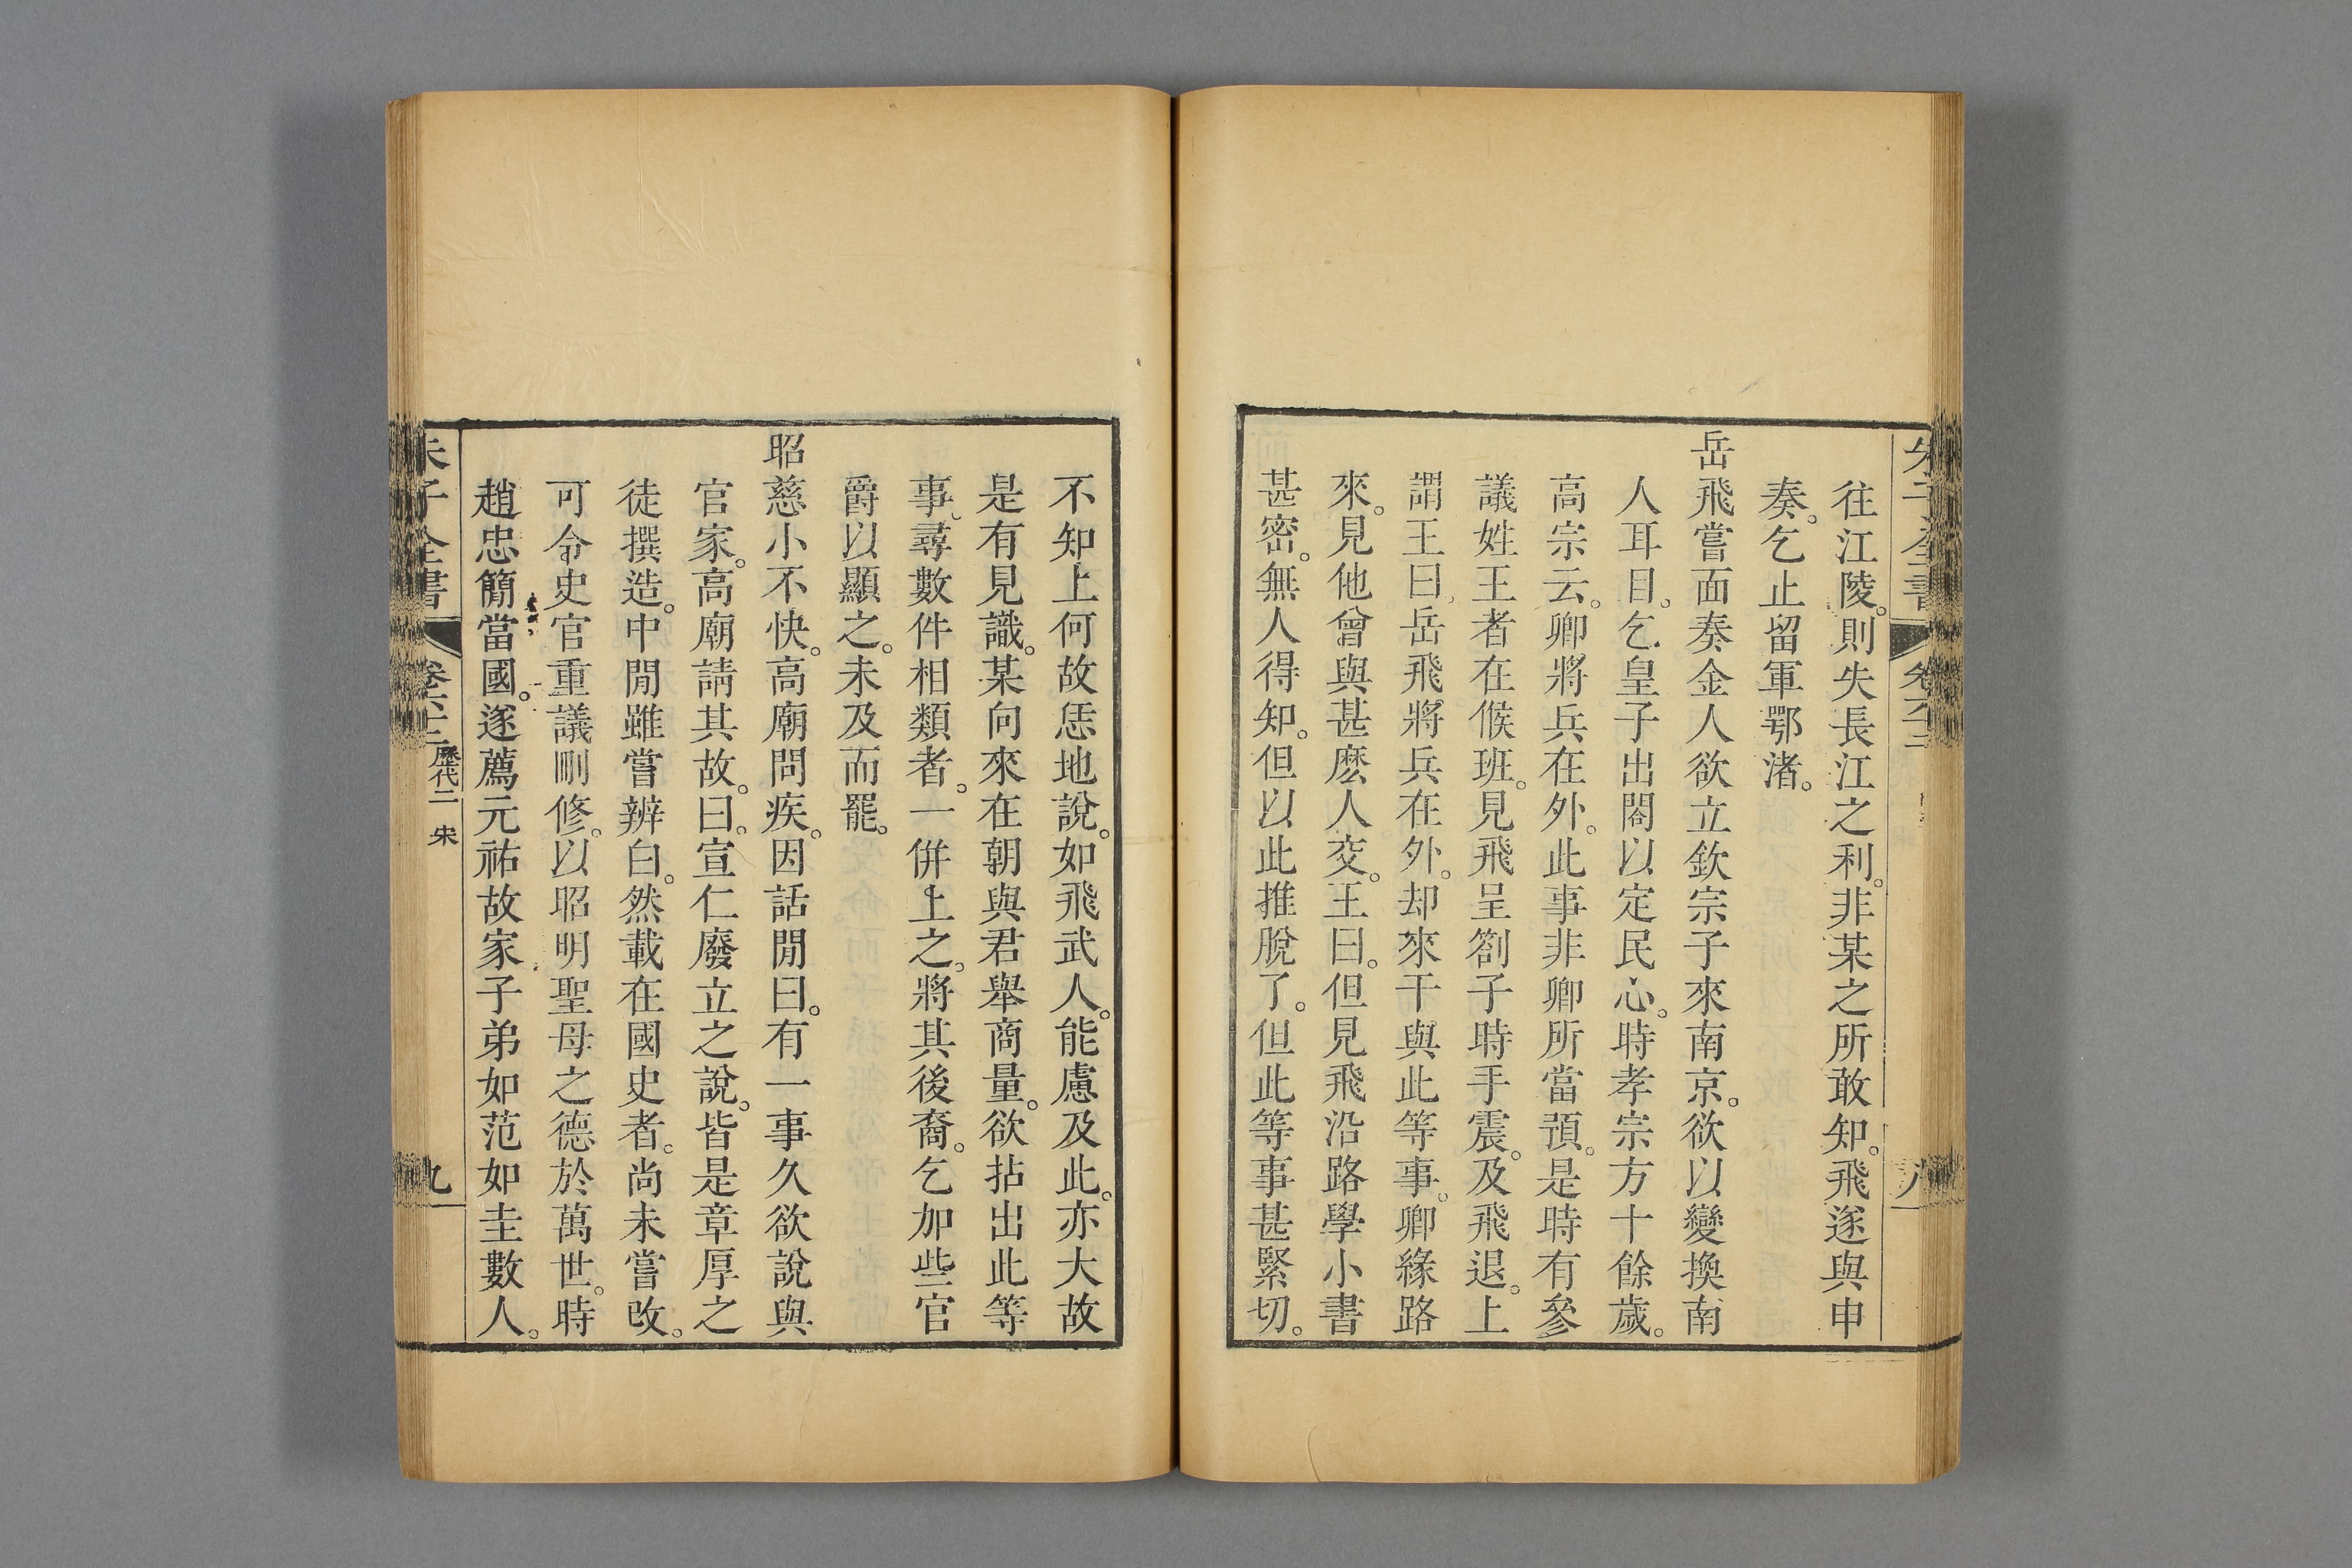 往江陵。則失長江之利。非某之所敢知。飛遂與申
奏。乞止留軍鄂渚。
岳飛嘗面奏金人欲立欽宗子來南京。欲以變換南
人耳目。乞皇子出閤以定民心。時孝宗方十餘歲。
高宗云。卿將兵在外。此事非卿所當預。是時有參
議姓王者在候班。見飛呈劄子時手震。及飛退。上
謂王曰。岳飛將兵在外。却來干與此等事。卿緣路
來。見他曾與甚麽人交。王曰。但見飛沿路學小書
甚密。無人得知。但以此推脫了。但此等事甚緊切。
不知上何故恁地說。如飛武人。能慮及此。亦大故
是有見識。某向來在朝與君舉商量。欲拈出此等
事。尋數件相類者。一併上之。將其後裔。乞加些官
爵以顯之。未及而罷。
昭慈小不快。高廟問疾。因話閒曰。有一事久欲說與
官家。高廟請其故。曰。宣仁廢立之說。皆是章厚之
徒撰造。中閒雖嘗辨白。然載在國史者。尚未嘗改。
可令史官重議刪修。以昭明聖母之德於萬世。時
趙忠簡當國。遂薦元祐故家子弟如范如圭數人。
朱子全書 歷代二 宋 九